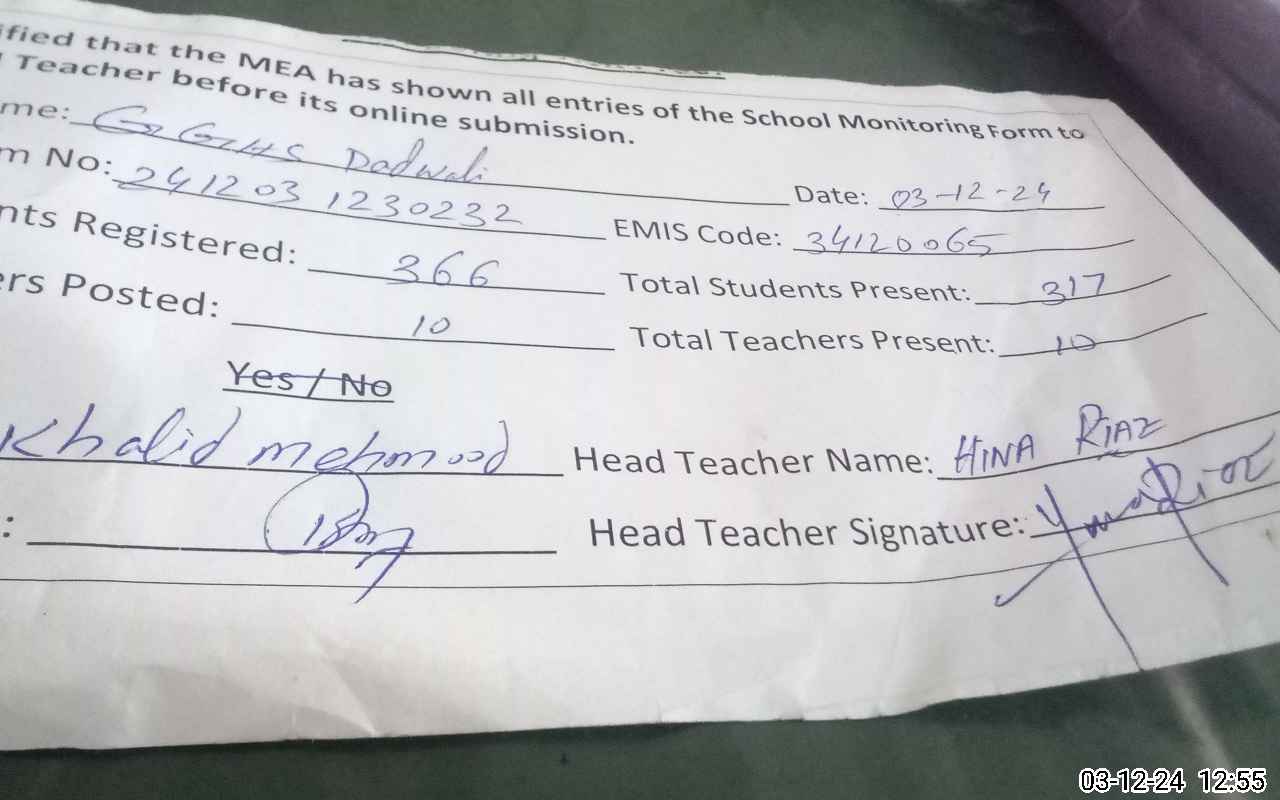 ified that the MEA has shown all entries of the School Monitoring Form to
Teacher before its online submission.
me: GGHS Dadwali
Date: 03-12-24
m No: 241203 1230232
EMIS Code: 34120065
nts Registered: 366
Total Students Present: 317
ers Posted: 10
Total Teachers Present: 10
Yes / No
Khalid mehmood
Head Teacher Name: HINA RIAZ
:
Head Teacher Signature:
03-12-24 12:55